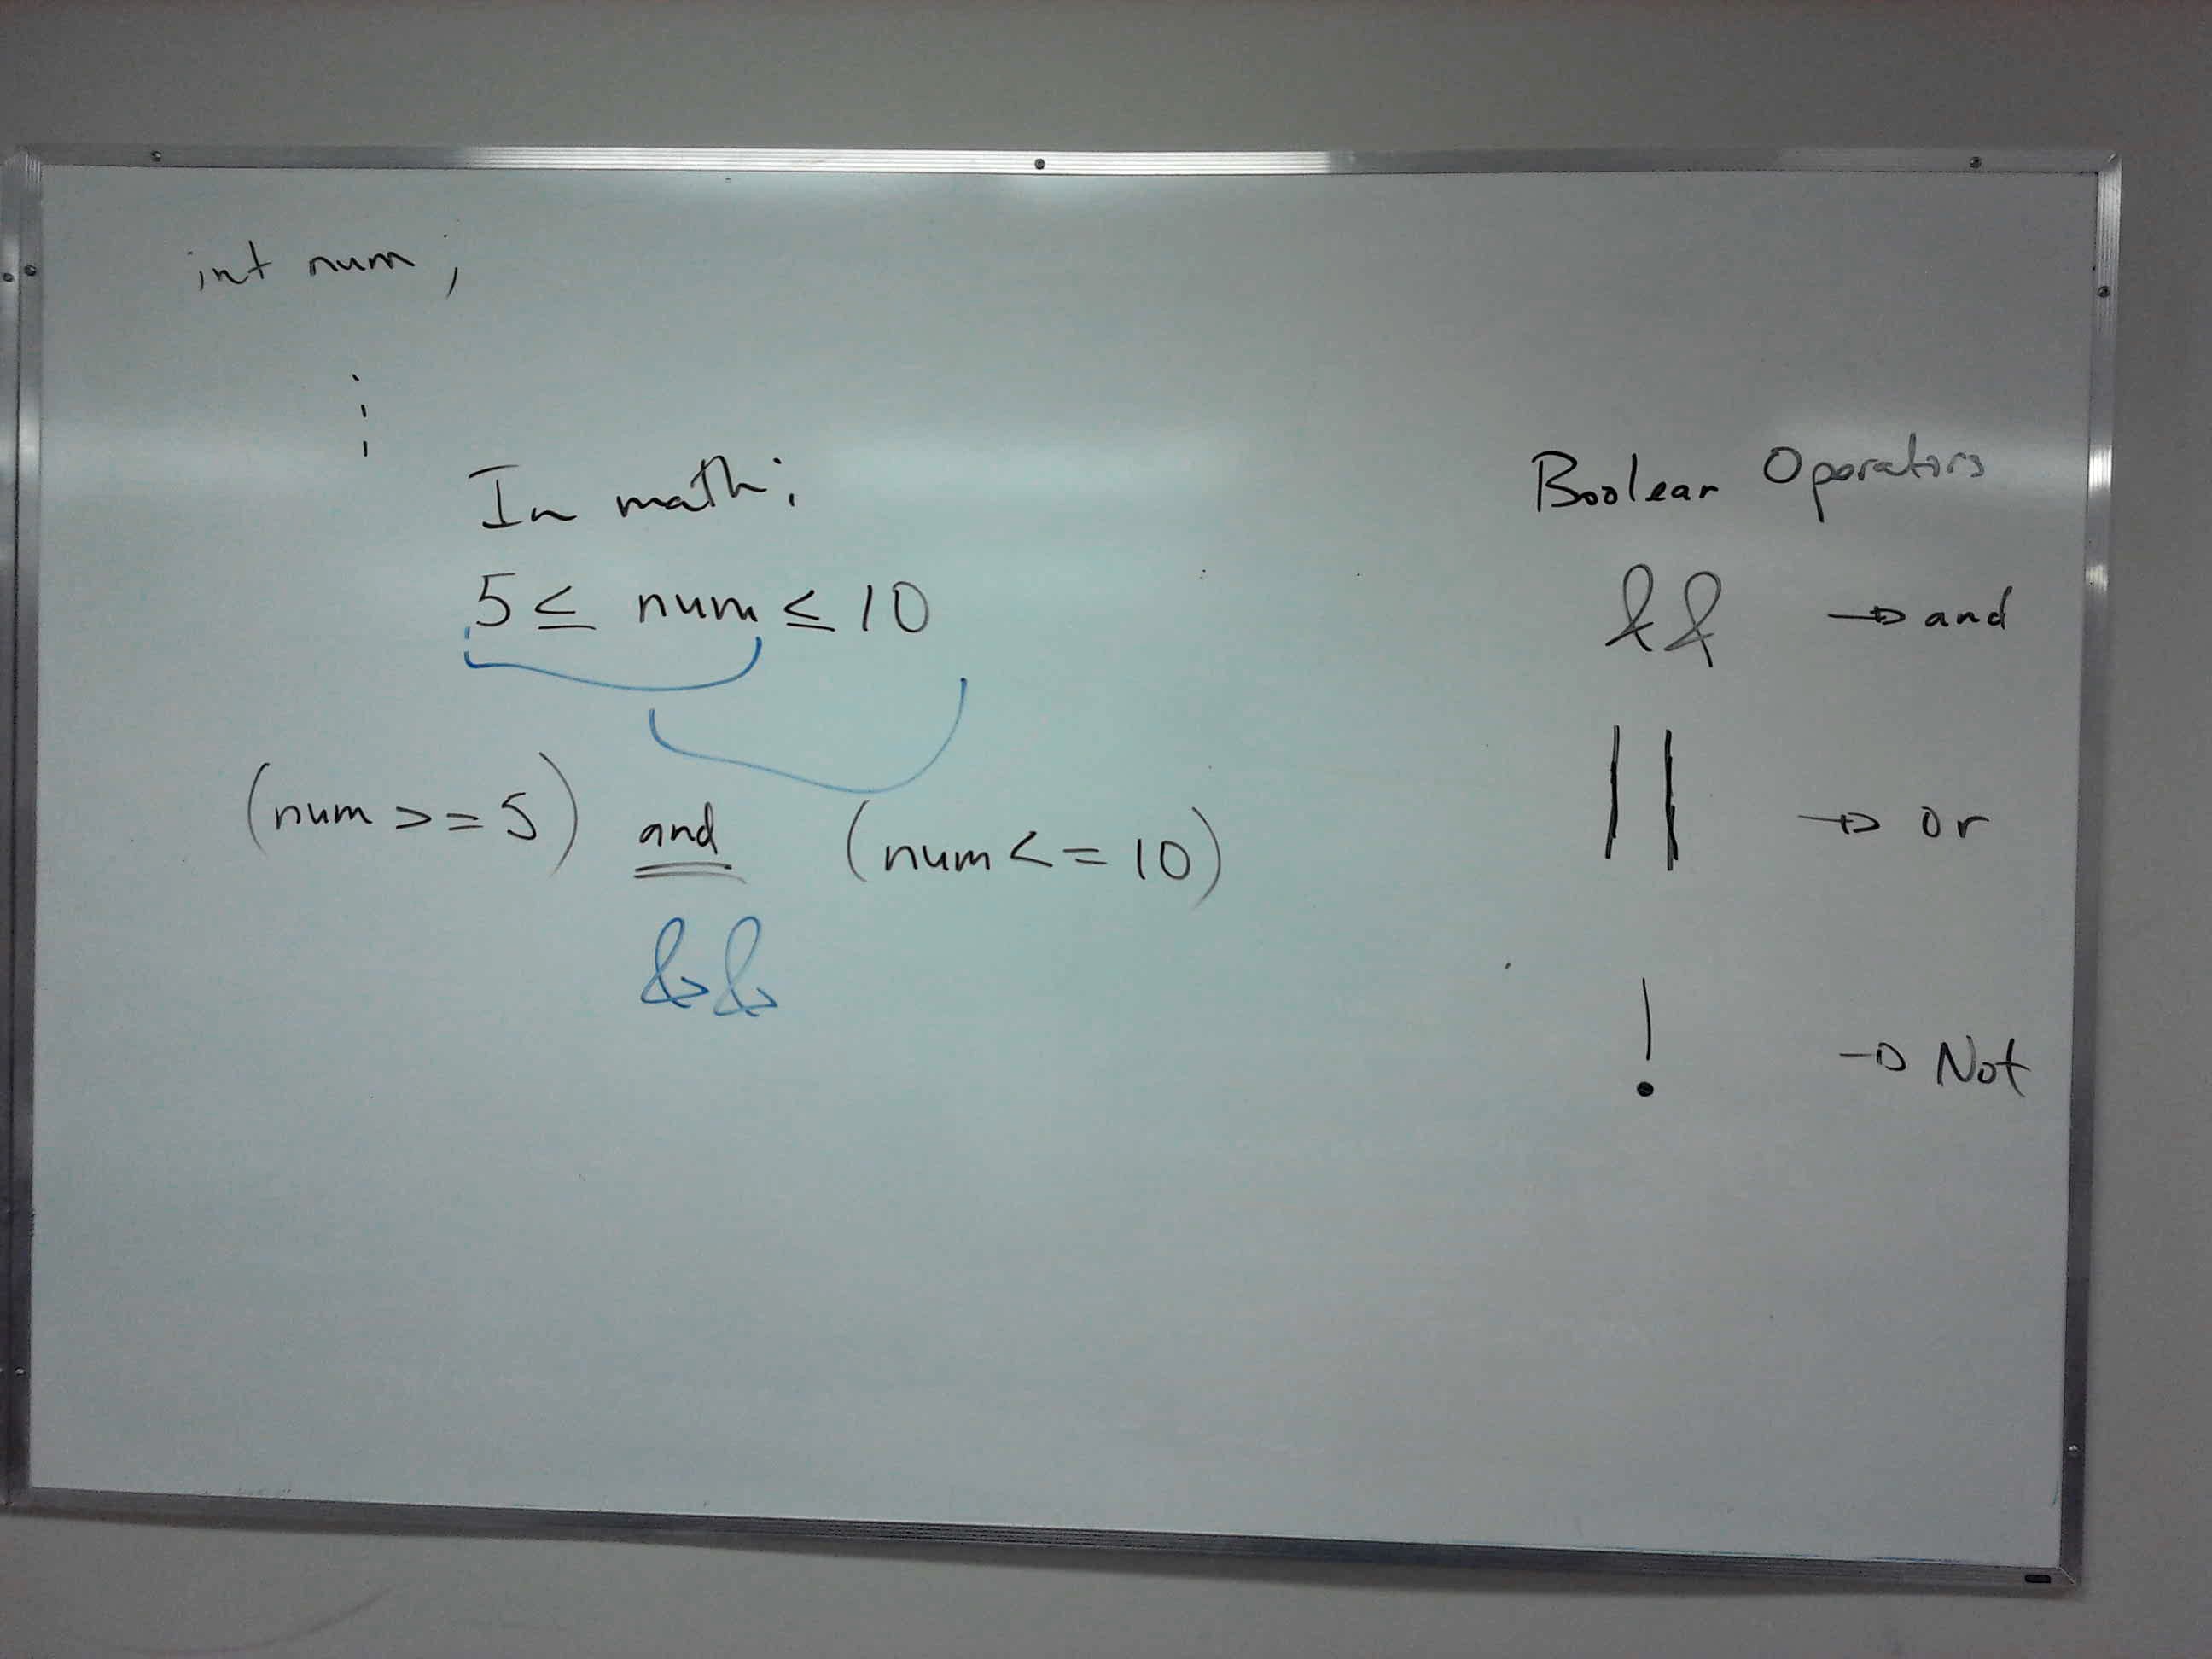 int num;
⋮
In math:
5 ≤ num ≤ 10
(num >= 5) and (num <= 10)
&&
Boolean Operators
&& → and
|| → or
! → Not